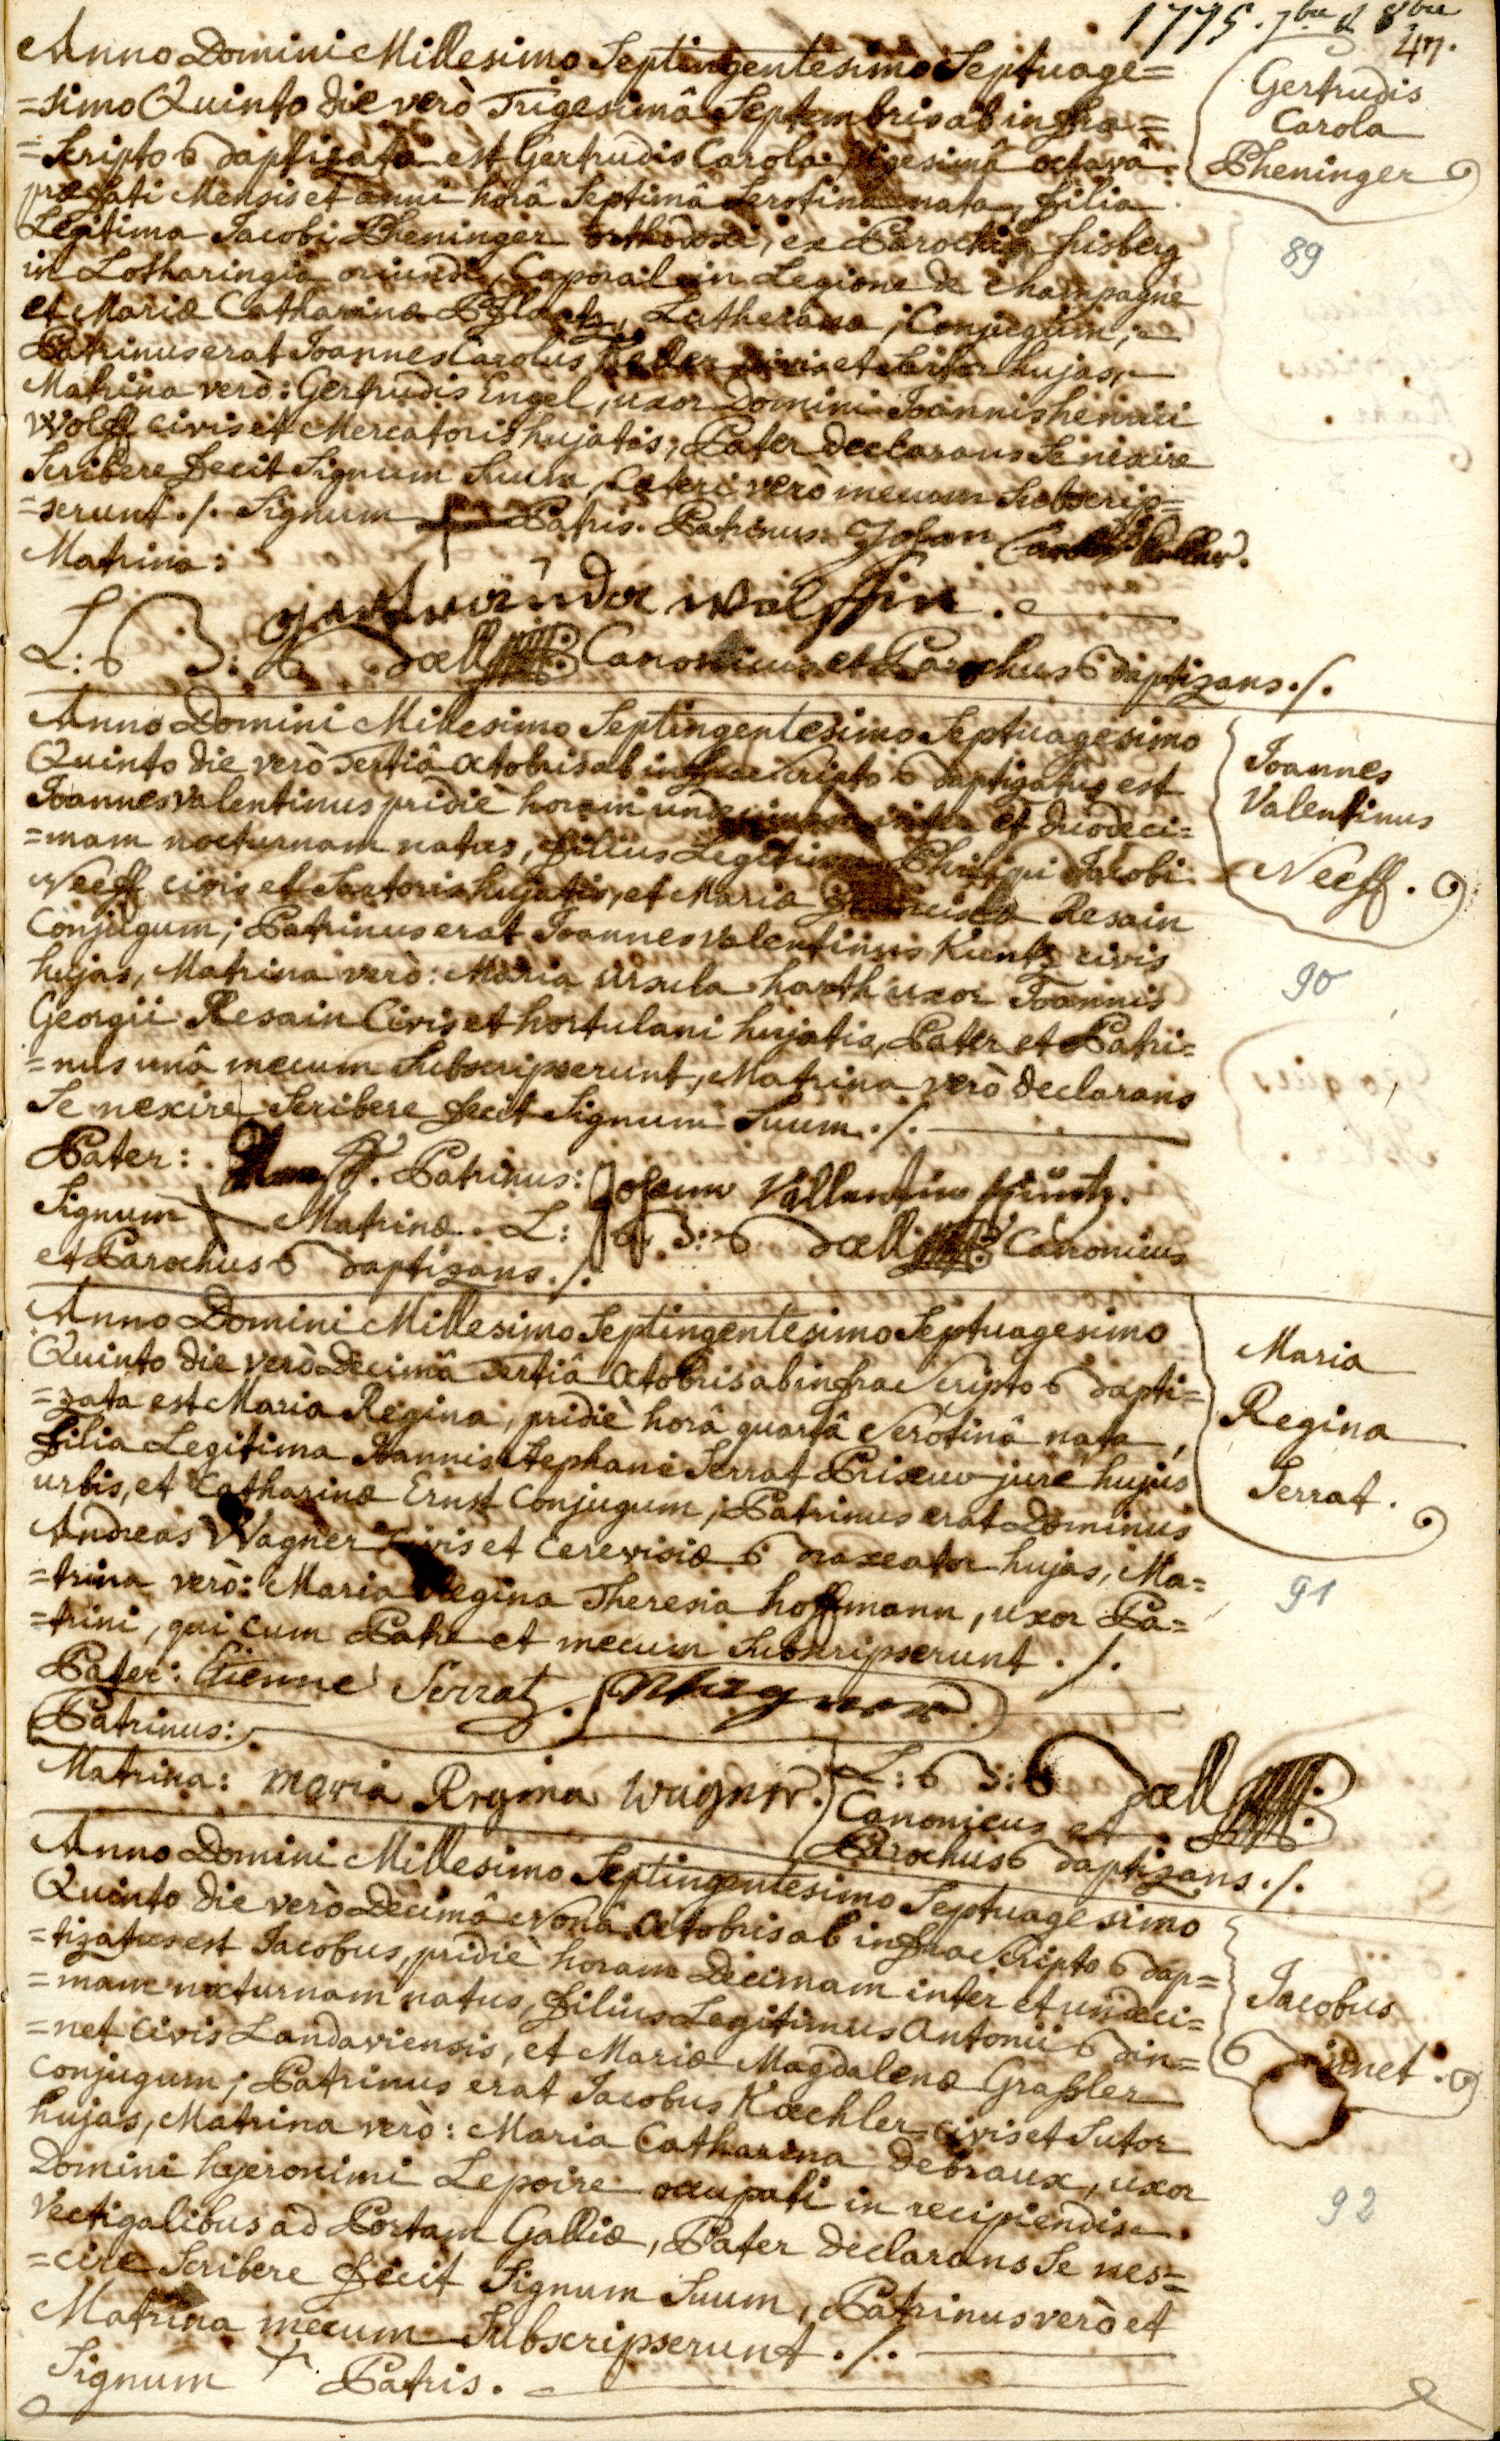 1775. 7bre & 8bre
47.
Anno Domini Millesimo Septingentesimo Septuage=
=simo Quinto die verò Trigesimâ Septembris ab infra=
=Scripto Baptizata est Gertrudis Carola, vigesimâ octavâ
præfati Mensis et anni horâ Septimâ Serotinâ nata, filia
Legitima Jacobi Pheninger orthodoxi, ex Parochia husberg
in Lotharingia oriundi, Caporal in Legione de Champagne
et Mariæ Catharinæ Lutherana, Conjugum,
Patrinus erat Joannes Carolus Keller civis et Sartor hujas,
Matrina verò: Gertrudis Engel, uxor Domini Joannis henrici
Wolff civis et Mercatoris hujatis, Pater declarans Se nescire
Scribere fecit Signum Suum, Cæteri verò mecum Subscrip=
=serunt ./. Signum + Patris. Patrinus: Johan Carolus Keller.
Matrina:
gertruda wolffin.
L: B: Boell Canonicus et Parochus Baptizans ./.
Gertrudis
Carola
Pheninger
89
Anno Domini Millesimo Septingentesimo Septuagesimo
Quinto die verò Tertiâ Octobris ab infrascripto Baptizatus est
Joannes Valentinus pridiè horam undecimam inter et duodeci=
=mam nocturnam natus, filius Legitimus Philippi Jacobi
Neeff civis et Sartoris hujatis, et Mariæ Franciscæ Resain
Conjugum; Patrinus erat Joannes Valentinus Kientz civis
hujas, Matrina verò: Maria Ursula harth uxor Joannis
Georgii Resain Civis et hortulani hujatis, Pater et Patri=
=nus unâ mecum Subscripserunt, Matrina verò declarans
Se nescire Scribere fecit Signum Suum ./.
Pater: Patrinus: Johann Vallentin Küntz.
Signum + Matrinæ. L: B: Boell Canonicus
et Parochus Baptizans ./.
Joannes
Valentinus
Neeff.
90
Anno Domini Millesimo Septingentesimo Septuagesimo
Quinto die verò Decimâ Tertiâ Octobris ab infrascripto Bapti=
=zata est Maria Regina, pridiè horâ quartâ Serotinâ nata,
filia Legitima Joannis Stephani Serrat Prixuv jure hujus
urbis, et Catharinæ Ernst Conjugum; Patrinus erat Dominus
Andreas Wagner Civis et Cerevisiæ Braxeator hujas, Ma=
=trina verò: Maria Regina Theresia hoffmann, uxor Pa=
=trini, qui cum Patre et mecum Subscripserunt ./.
Pater: Etienne Serrat. Wagner
Patrinus:
Matrina: Maria Regina Wagner.
L: B: Boell
Canonicus et
Parochus Baptizans ./.
Maria
Regina
Serrat.
91
Anno Domini Millesimo Septingentesimo Septuagesimo
Quinto die verò Decimâ Nonâ Octobris ab infrascripto Bap=
=tizatus est Jacobus, pridiè horam Decimam inter et undeci=
=mam nocturnam natus, filius Legitimus Antonii Bin=
=net civis Landaviensis, et Mariæ Magdalenæ Graßler
conjugum; Patrinus erat Jacobus Kœchler civis et Sutor
hujas, Matrina verò: Maria Catharina Debraux, uxor
Domini hyeronimi Lepoire occupati in recipiendis
Vectigalibus ad Portam Galliæ, Pater declarans Se nes=
=cire Scribere fecit Signum Suum, Patrinus verò et
Matrina mecum Subscripserunt ./.
Signum + Patris.
Jacobus
Binnet.
92